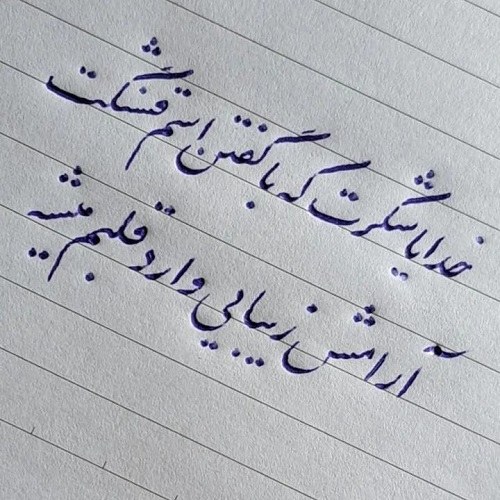 خدایا شکرت که با گفتن اسم قشنگت
آرامش زیبایی وارد قلبم میشه